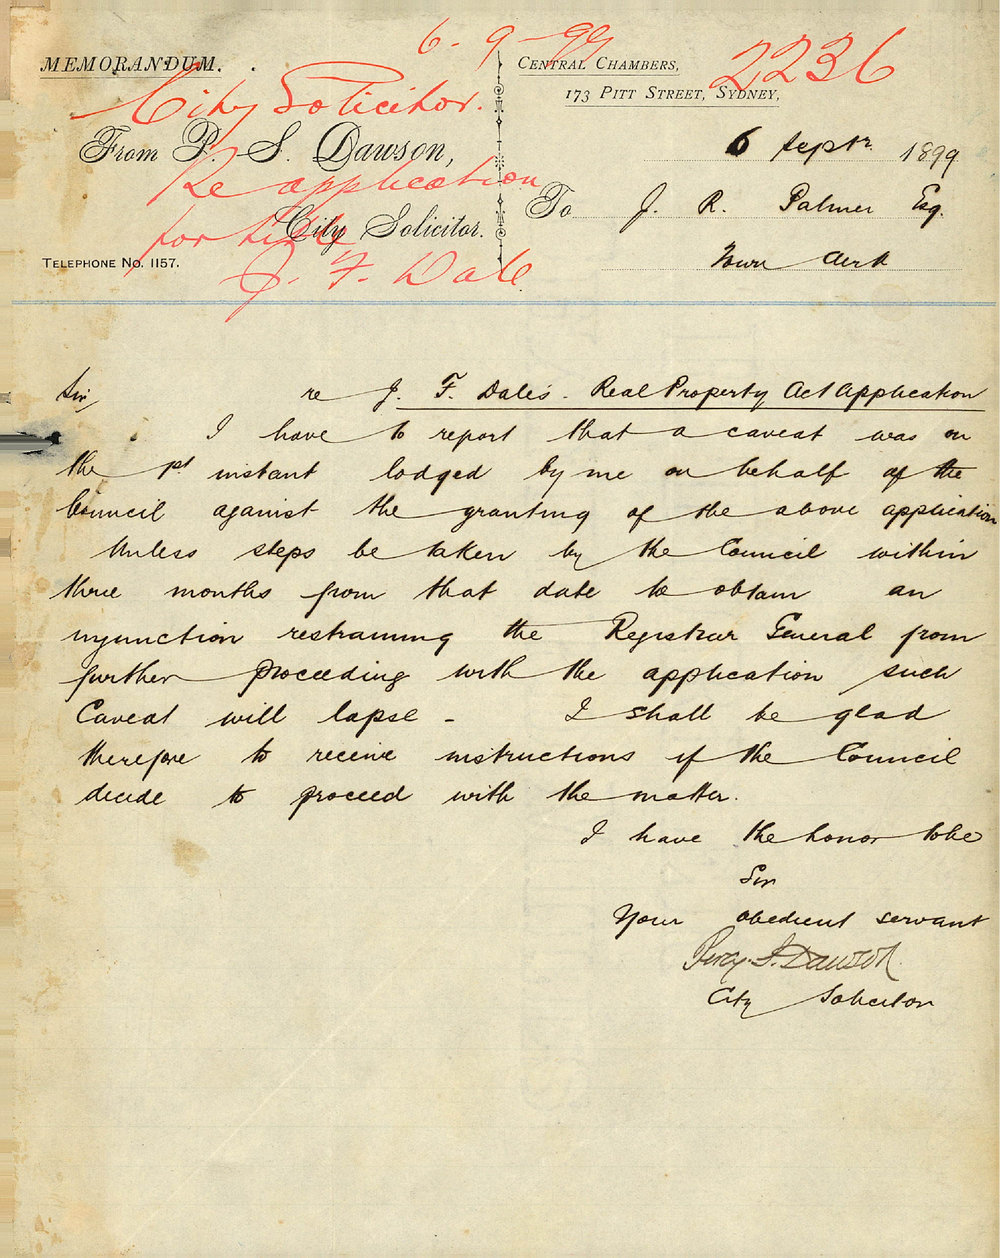 6-9-99
2236
MEMORANDUM.
CENTRAL CHAMBERS,
173 PITT STREET, SYDNEY,
City Solicitor.
From P. S. Dawson,
6 Septr. 1899
Re application
To J. R. Palmer Esq.
City Solicitor.
for title
Town Clerk
TELEPHONE No. 1157.
J. F. Dale
Sir
re J. F. Dale's. Real Property Act Application
I have to report that a caveat was on
the 1st instant lodged by me on behalf of the
Council against the granting of the above application
Unless steps be taken by the Council within
three months from that date to obtain an
injunction restraining the Registrar General from
further proceeding with the application such
Caveat will lapse - I shall be glad
therefore to receive instructions if the Council
decide to proceed with the matter.
I have the honor to be
Sir
Your obedient servant
Percy S. Dawson
City Solicitor